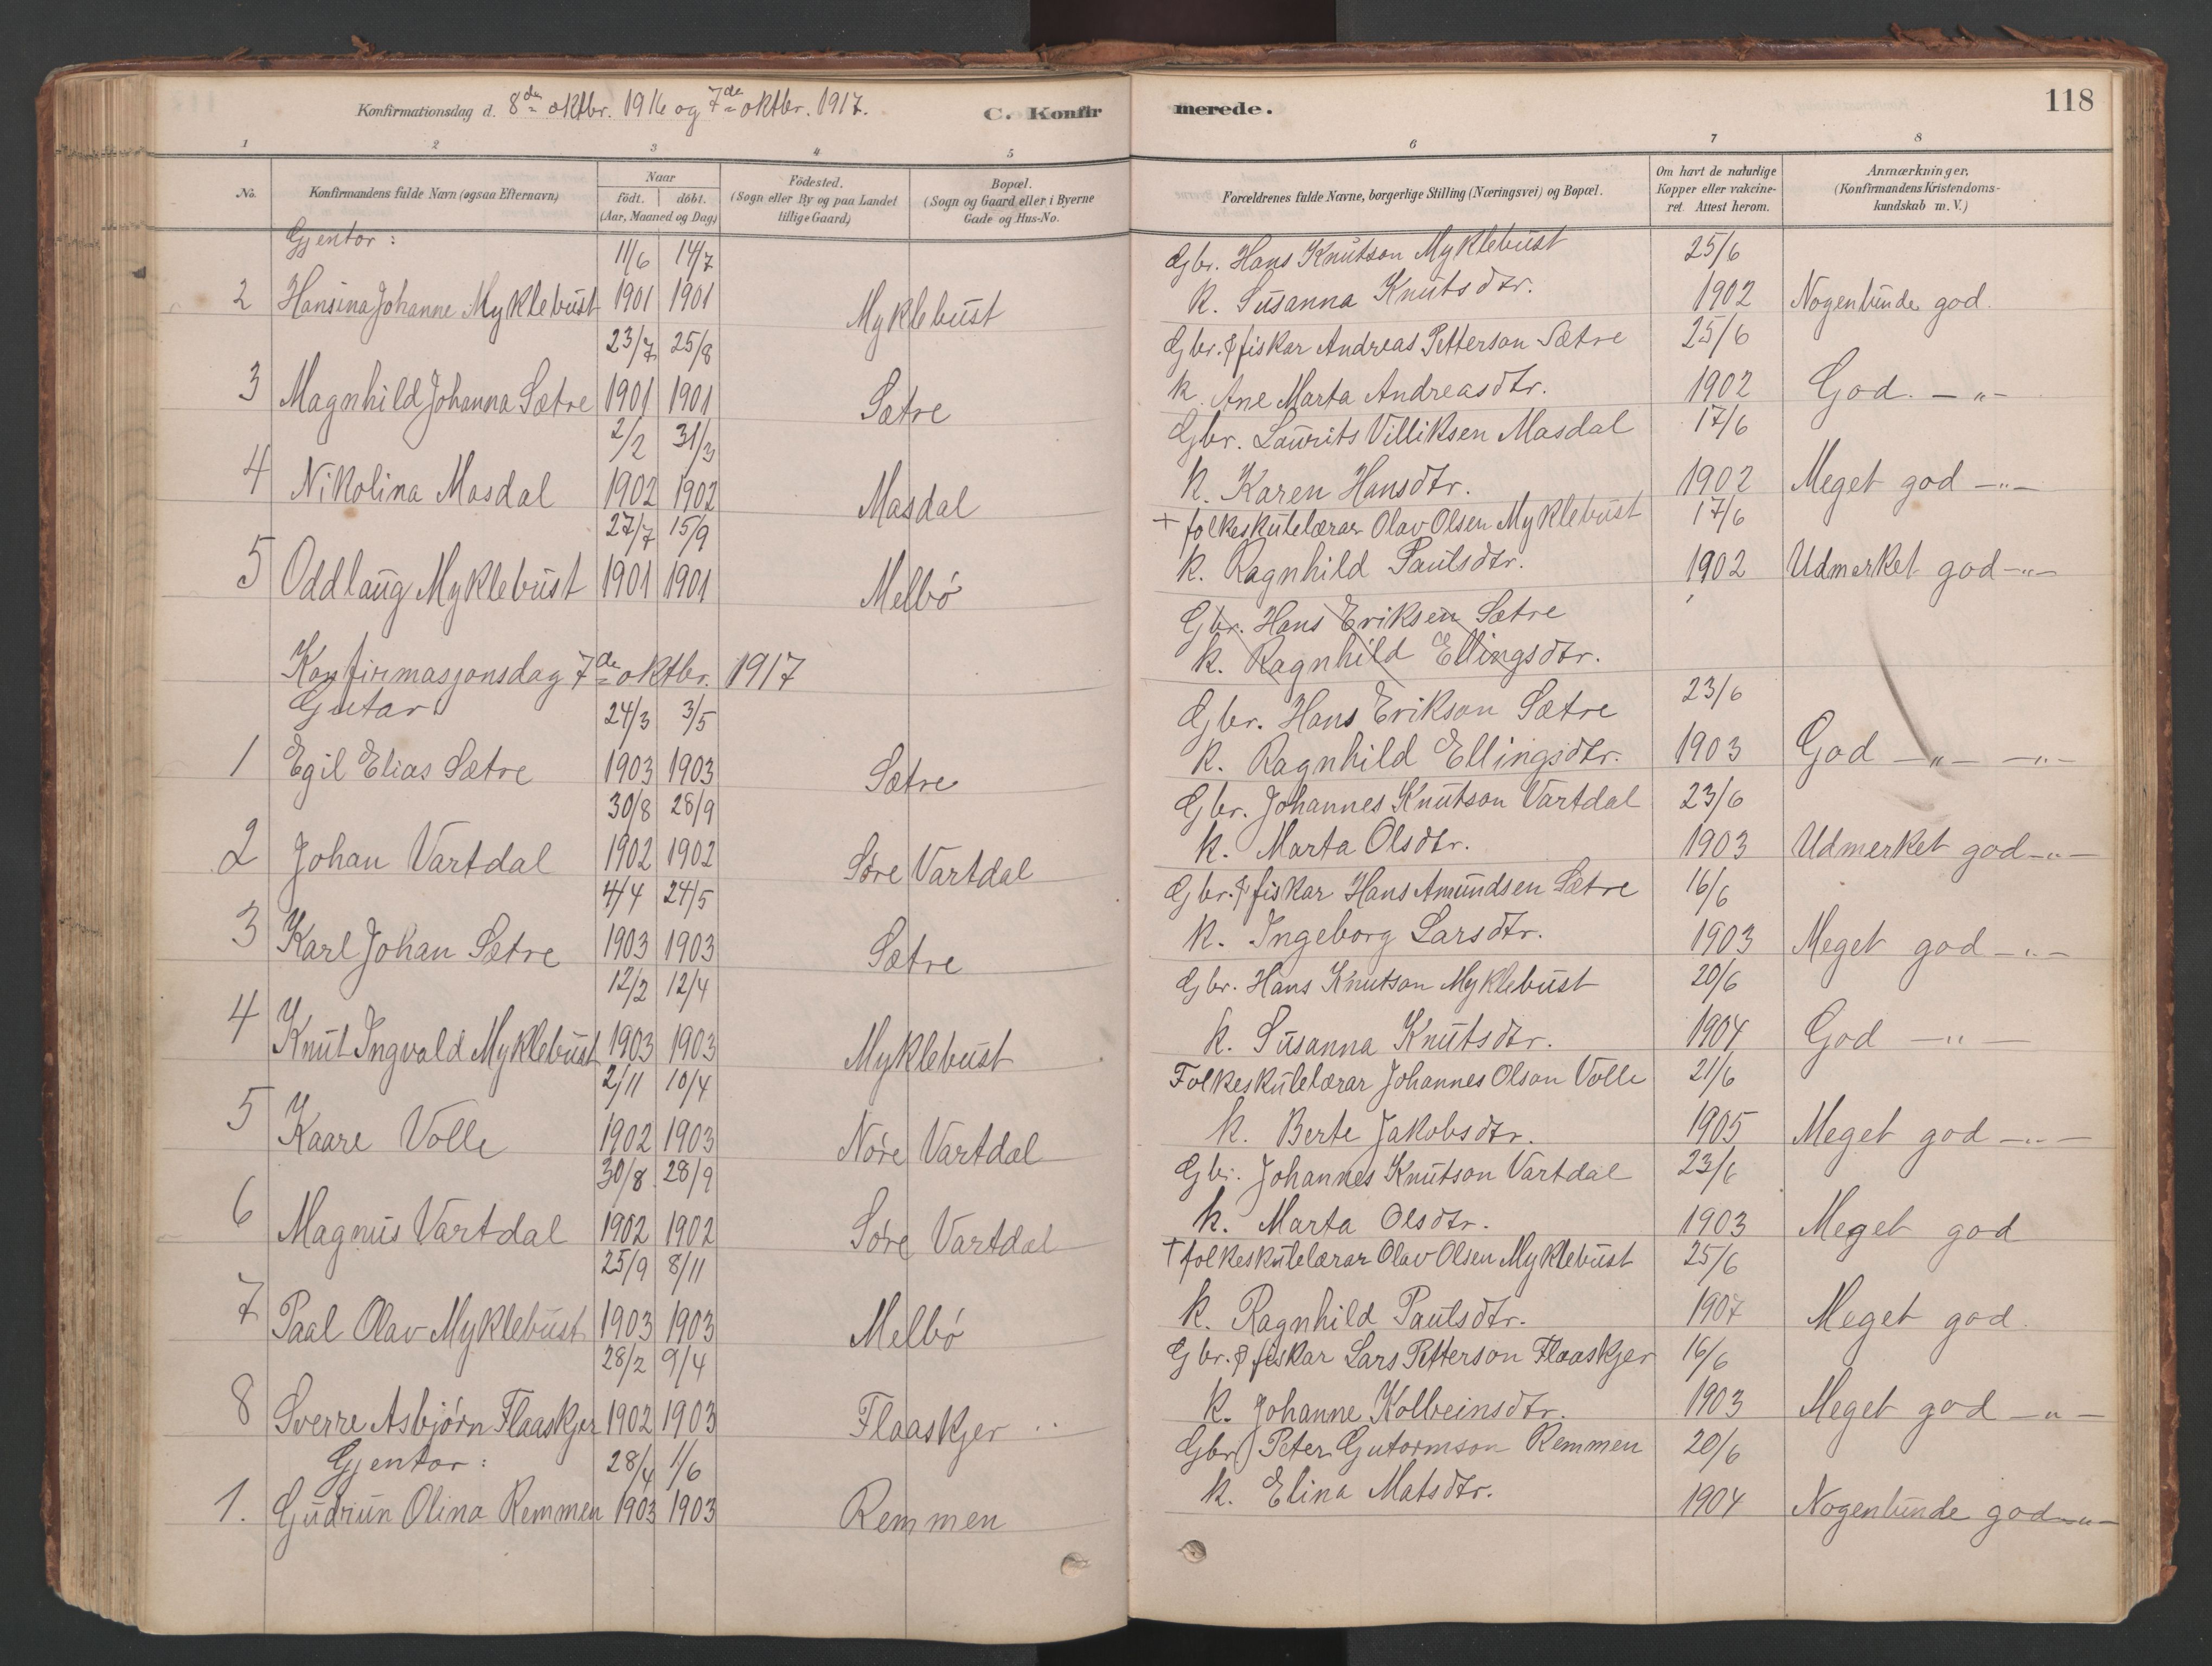 Konfirmationsdag d. 8de oktbr. 1916 og 7de oktbr. 1917.
C. Konfirmerede.
118
1 2 3 4 5 6 7 8
No.
Konfirmandens fulde Navn (ogsaa Efternavn)
Naar
födt. döbt.
(Aar, Maaned og Dag)
Födested.
(Sogn eller By og paa Landet
tillige Gaard)
Bopæl.
(Sogn og Gaard eller i Byerne
Gade og Hus-No.
Forældrenes fulde Navne, borgerlige Stilling (Næringsvei) og Bopæl.
Om havt de naturlige
Kopper eller vakcine-
ret. Attest herom.
Anmærkninger.
(Konfirmandens Kristendoms-
kundskab m. V.)
Gjentor: 11/6 14/7 Gbr. Hans Knutson Myklebust 25/6
2 Hansina Johanne Myklebust 1901 1901 Myklebust k. Susanna Knutsdtr. 1902 Nogenlunde god
23/7 25/8 Gbr. & fiskar Andreas Petterson Sætre 25/6
3 Magnhild Johanna Sætre 1901 1901 Sætre k. Ane Marta Andreasdtr. 1902 God. -"-
2/2 31/3 Gbr. Laurits Villiksen Masdal 17/6
4 Nikolina Masdal 1902 1902 Masdal k. Karen Hansdtr. 1902 Meget god -"-
27/7 15/9 + folkeskulelærar Olav Olsen Myklebust 17/6
5 Oddlaug Myklebust 1901 1901 Melbö k. Ragnhild Paulsdtr. 1902 Udmerket god -"-
Gbr. Hans Eriksen Sætre
k. Ragnhild Ellingsdtr.
Konfirmasjonsdag 7de oktbr. 1917
Gutar 24/3 3/5 Gbr. Hans Erikson Sætre 23/6
1 Egil Elias Sætre 1903 1903 Sætre k. Ragnhild Ellingsdtr. 1903 God -"- -"-
30/8 28/9 Gbr. Johannes Knutson Vartdal 23/6
2 Johan Vartdal 1902 1902 Söre Vartdal k. Marta Olsdtr. 1903 Udmerket god -"-
4/4 24/5 Gbr. & fiskar Hans Amundsen Sætre 16/6
3 Karl Johan Sætre 1903 1903 Sætre k. Ingeborg Larsdtr. 1903 Meget god -"-
12/2 12/4 Gbr. Hans Knutson Myklebust 20/6
4 Knut Ingvald Myklebust 1903 1903 Myklebust k. Susanna Knutsdtr. 1904 God -"-
2/11 10/4 Folkeskulelærar Johannes Olson Volle 21/6
5 Kaare Volle 1902 1903 Nöre Vartdal k. Berte Jakobsdtr. 1905 Meget god -"-
30/8 28/9 Gbr. Johannes Knutson Vartdal 23/6
6 Magnus Vartdal 1902 1902 Söre Vartdal k. Marta Olsdtr. 1903 Meget god
25/9 8/11 + folkeskulelærar Olav Olsen Myklebust 25/6
7 Paal Olav Myklebust 1903 1903 Melbö k. Ragnhild Paulsdtr. 1907 Meget god.
28/2 9/4 Gbr. & fiskar Lars Petterson Flaaskjer 16/6
8 Sverre Asbjörn Flaaskjer 1902 1903 Flaaskjer k. Johanne Kolbeinsdtr. 1903 Meget god -"-
Gjentor: 28/4 1/6 Gbr. Peter Gutormson Remmen 20/6
1. Gudrun Olina Remmen 1903 1903 Remmen k. Elina Matsdtr. 1904 Nogenlunde god -"-